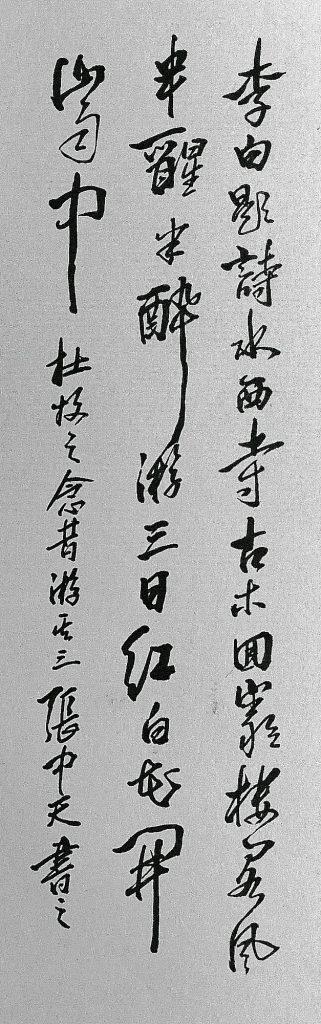 李白題詩水西寺古木回巖樓閣風
半醒半醉游三日紅白花開
山雨中 杜牧之念昔游其三 張中天書之